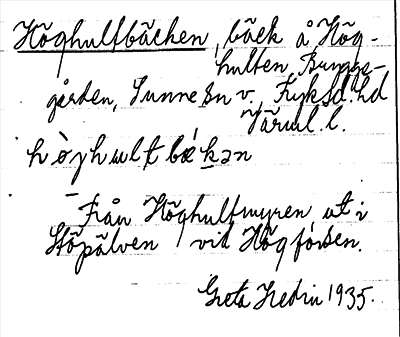 Höghultbäcken, bäck å Hög-
hulten, Bryngs-
gården, Sunne sn v., Fryksd. hd
Värml. l.
høghultbækən
Från Höghultmyren ut i
Stöpälven vid Högforsen.
Greta Hedin 1935.